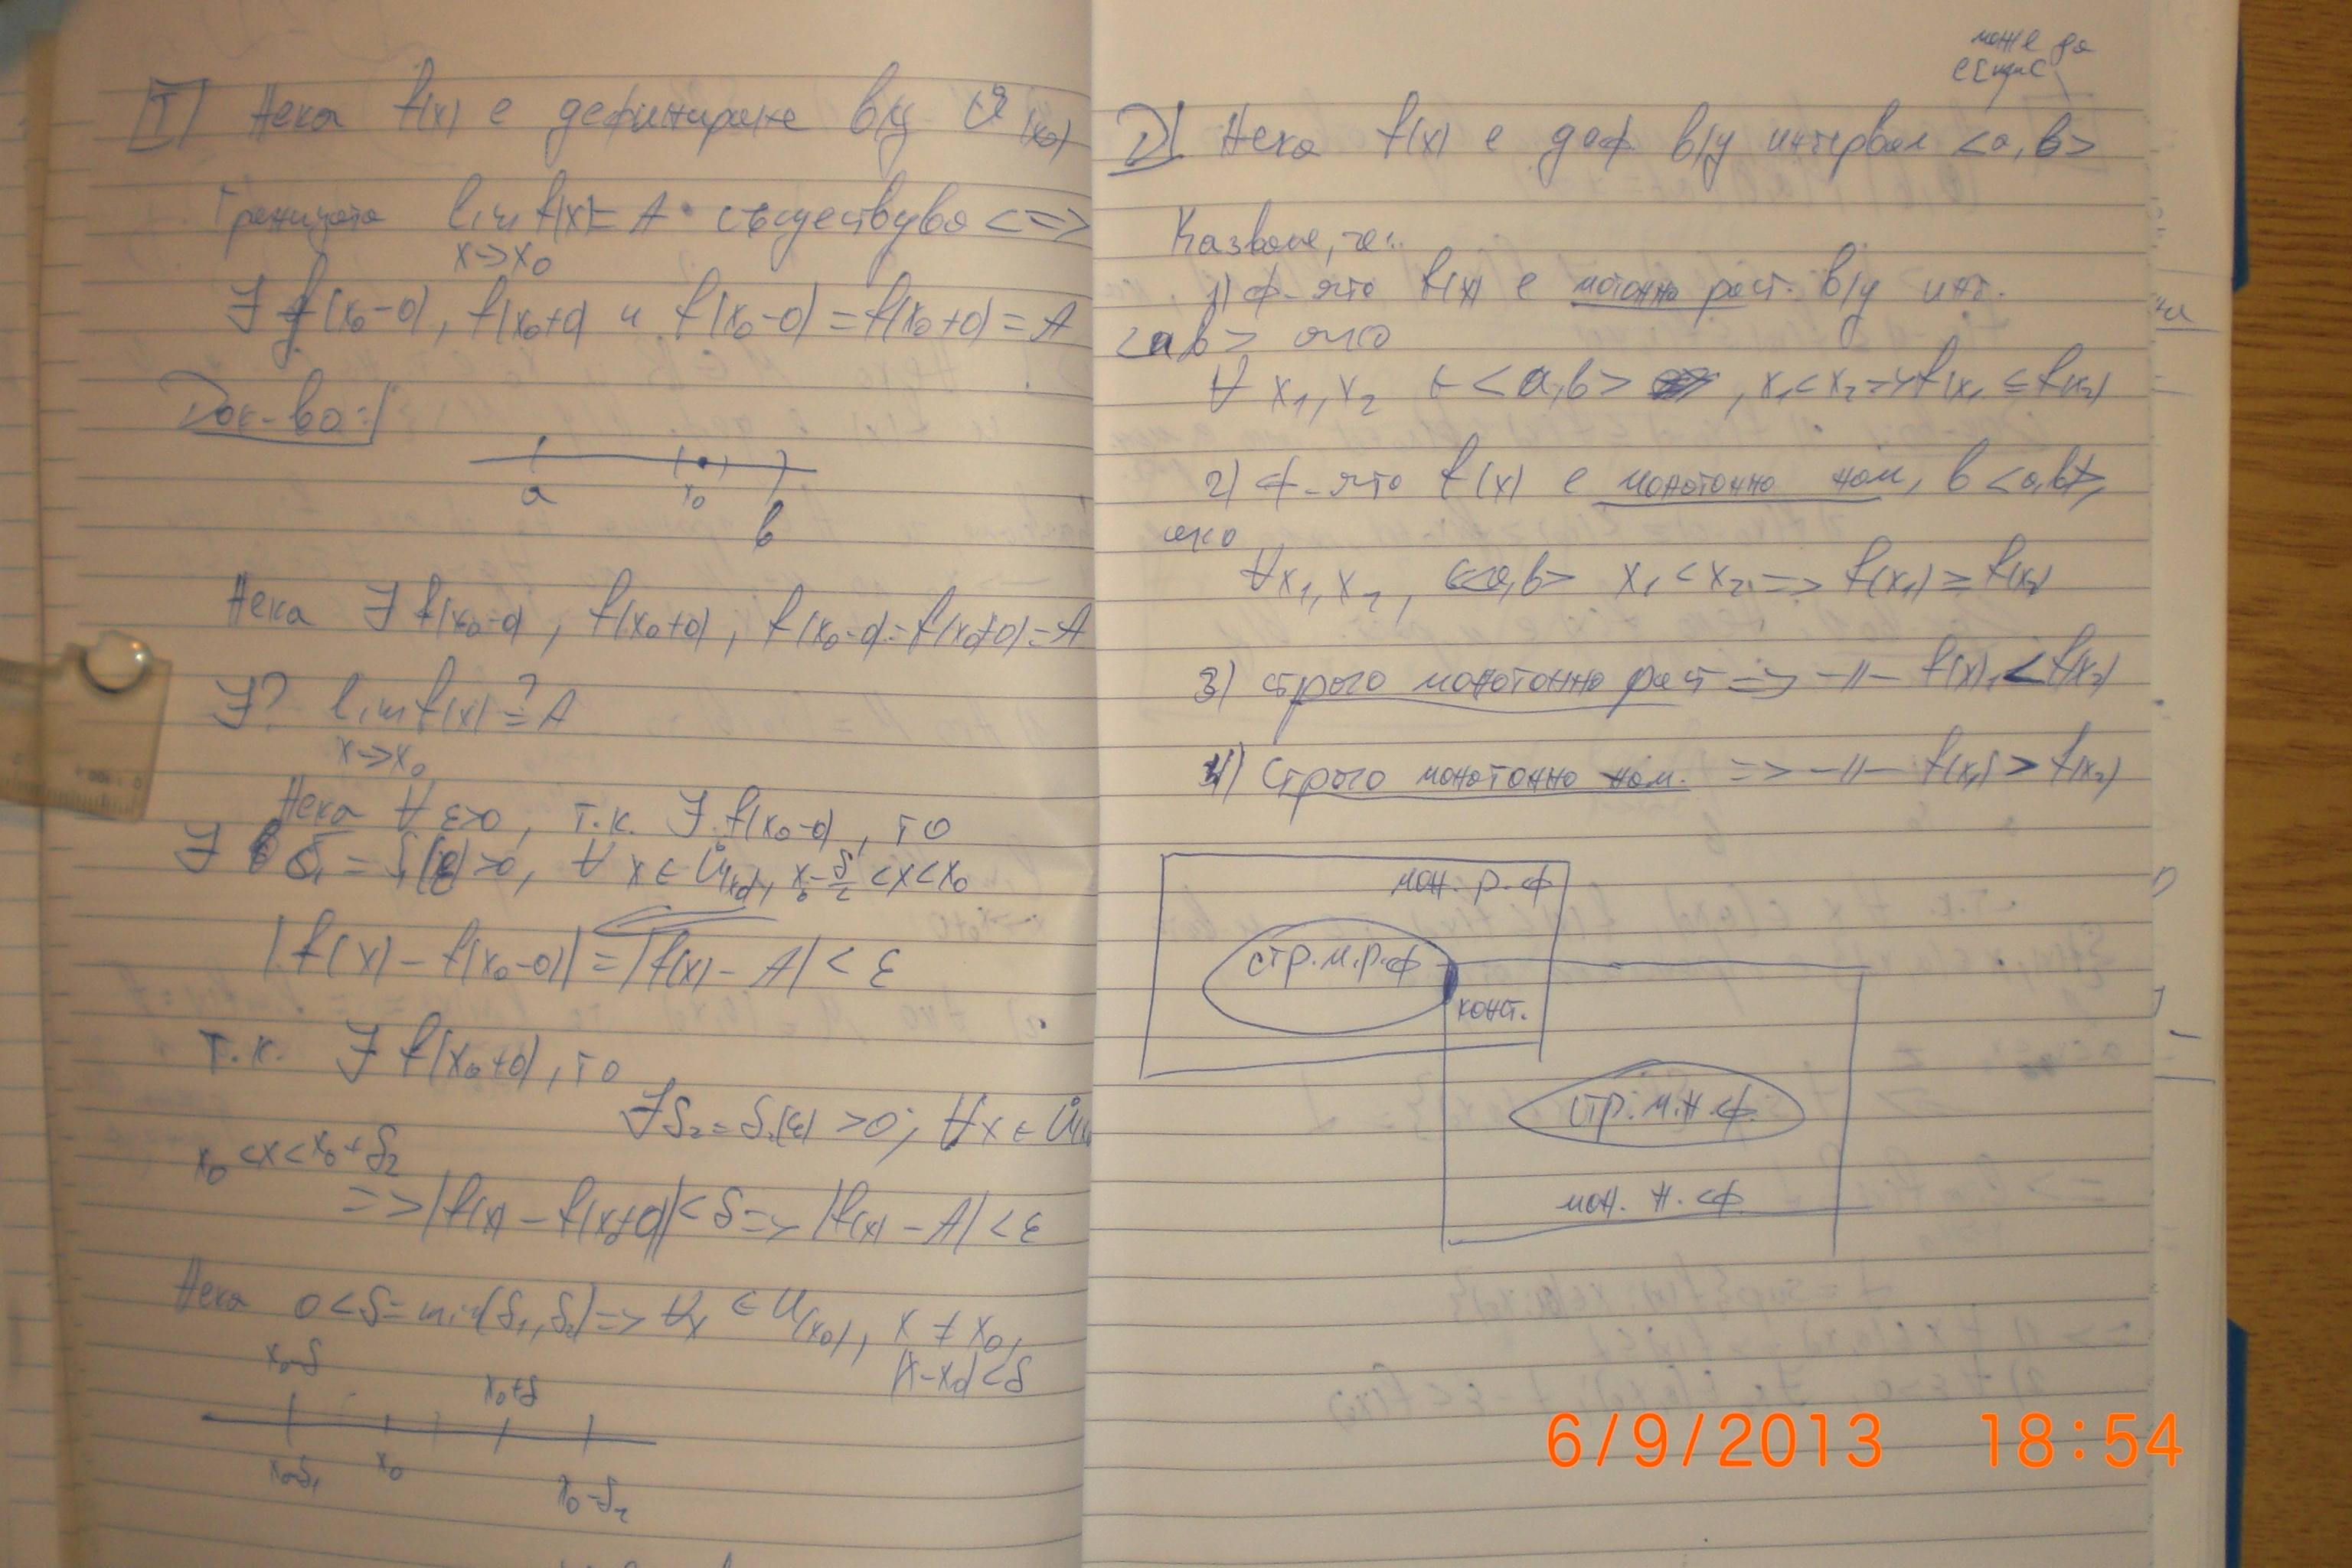 T Нека f(x) е дефинирана в/у Ů(x₀)
Границата lim f(x) = A съществува <=>
x->x₀
∃ f(x₀-0), f(x₀+0) и f(x₀-0) = f(x₀+0) = A
Док-во:
a x₀ b
Нека ∃ f(x₀-0), f(x₀+0), f(x₀-0) = f(x₀+0) = A
∃? lim f(x) ?= A
x->x₀
Нека ∀ ε>0, т.к. ∃ f(x₀-0), то
∃ δ₁ = δ₁(ε)>0, ∀ x ∈ Ů(x₀), <x<x₀
|f(x) - f(x₀-0)| = |f(x) - A| < ε
т.к. ∃ f(x₀+0), то
∃ δ₂ = δ₂(ε) >0; ∀x ∈ Ů
x₀ <x< x₀+δ₂
=> |f(x) - f(x₀+0)| < δ => |f(x) - A| < ε
Нека 0 < δ = min(δ₁, δ₂) => ∀x ∈ U(x₀), x ≠ x₀,
|x-x₀| < δ
x₀-δ x₀+δ
x₀-δ₁ x₀ x₀-δ₂
може да
D Нека f(x) е деф в/у интервал <a, b>
Казваме, че:
1) ф-ята f(x) е мотонно раст. в/у инт.
<a,b> ако
∀ x₁, x₂ ∈ <a,b> , x₁<x₂ => f(x₁) ≤ f(x₂)
2) ф-ята f(x) е монотонно нам, в <a,b>,
ако
∀x₁, x₂, ∈<a,b> x₁ < x₂ => f(x₁) ≥ f(x₂)
3) строго монотонно раст => -//- f(x)₁ < f(x₂)
4) Строго монотонно нам. => -//- f(x₁) > f(x₂)
мон. р. ф
стр. м. р. ф
конст.
стр. м. н. ф.
мон. н. ф.
6/9/2013 18:54